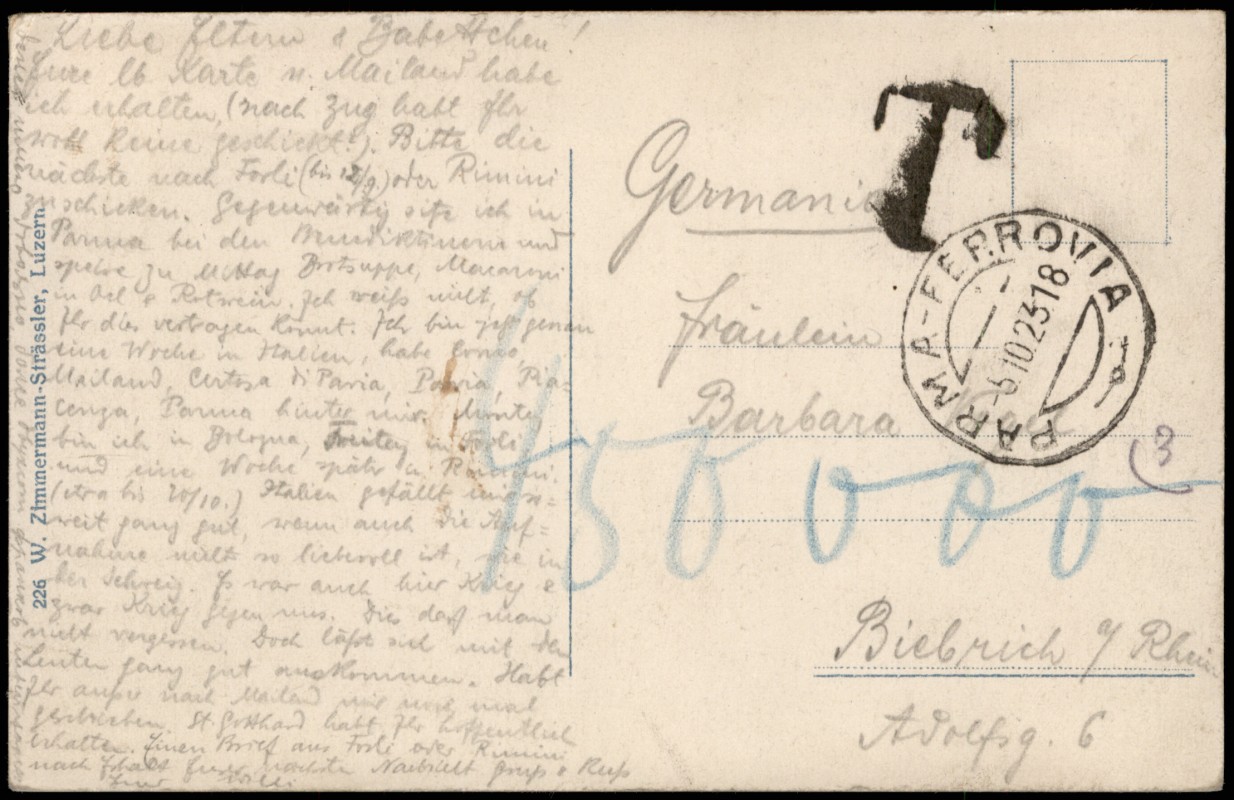 Liebe Eltern & Babettchen!
Eure lb Karte n. Mailand habe
ich erhalten, (nach Zug habt Ihr
wohl keine geschickt?). Bitte die
nächste nach Forli (bis 12/9.) oder Rimini
schicken. Gegenwärtig sitze ich in
Parma bei den Benediktinern und
speise zu Mittag Brotsuppe, Macaroni
in Oel & Rotwein. Ich weiß nicht, ob
Ihr dies vertragen könnt. Ich bin jetzt genau
eine Woche in Italien, habe Como,
Mailand, Certosa di Pavia, Pavia, Pia=
cenza, Parma hinter mir.
bin ich in Bologna, Freitag in Forli
und eine Woche später in Rimini.
(etwa bis 20/10.) Italien gefällt mir so=
weit ganz gut, wenn auch die Auf=
nahme nicht so liebevoll ist, wie in
der Schweiz. Es war auch hier Krieg &
zwar Krieg gegen uns. Dies darf man
nicht vergessen. Doch läßt sich mit den
Leuten ganz gut auskommen. Habt
Ihr außer nach Mailand mir noch mal
geschrieben. St. Gotthard habt Ihr hoffentlich
erhalten. Einen Brief aus Forli oder Rimini
nach Erhalt Eurer nächsten Nachricht Gruß & Kuß
Euer Willi
226 W. Zimmermann-Strässler, Luzern
T
PARMA-FERROVIA
5 10 23 18
Germania
Fräulein
Barbara
(3
450000
Biebrich a/ Rhein
Adolfsg. 6